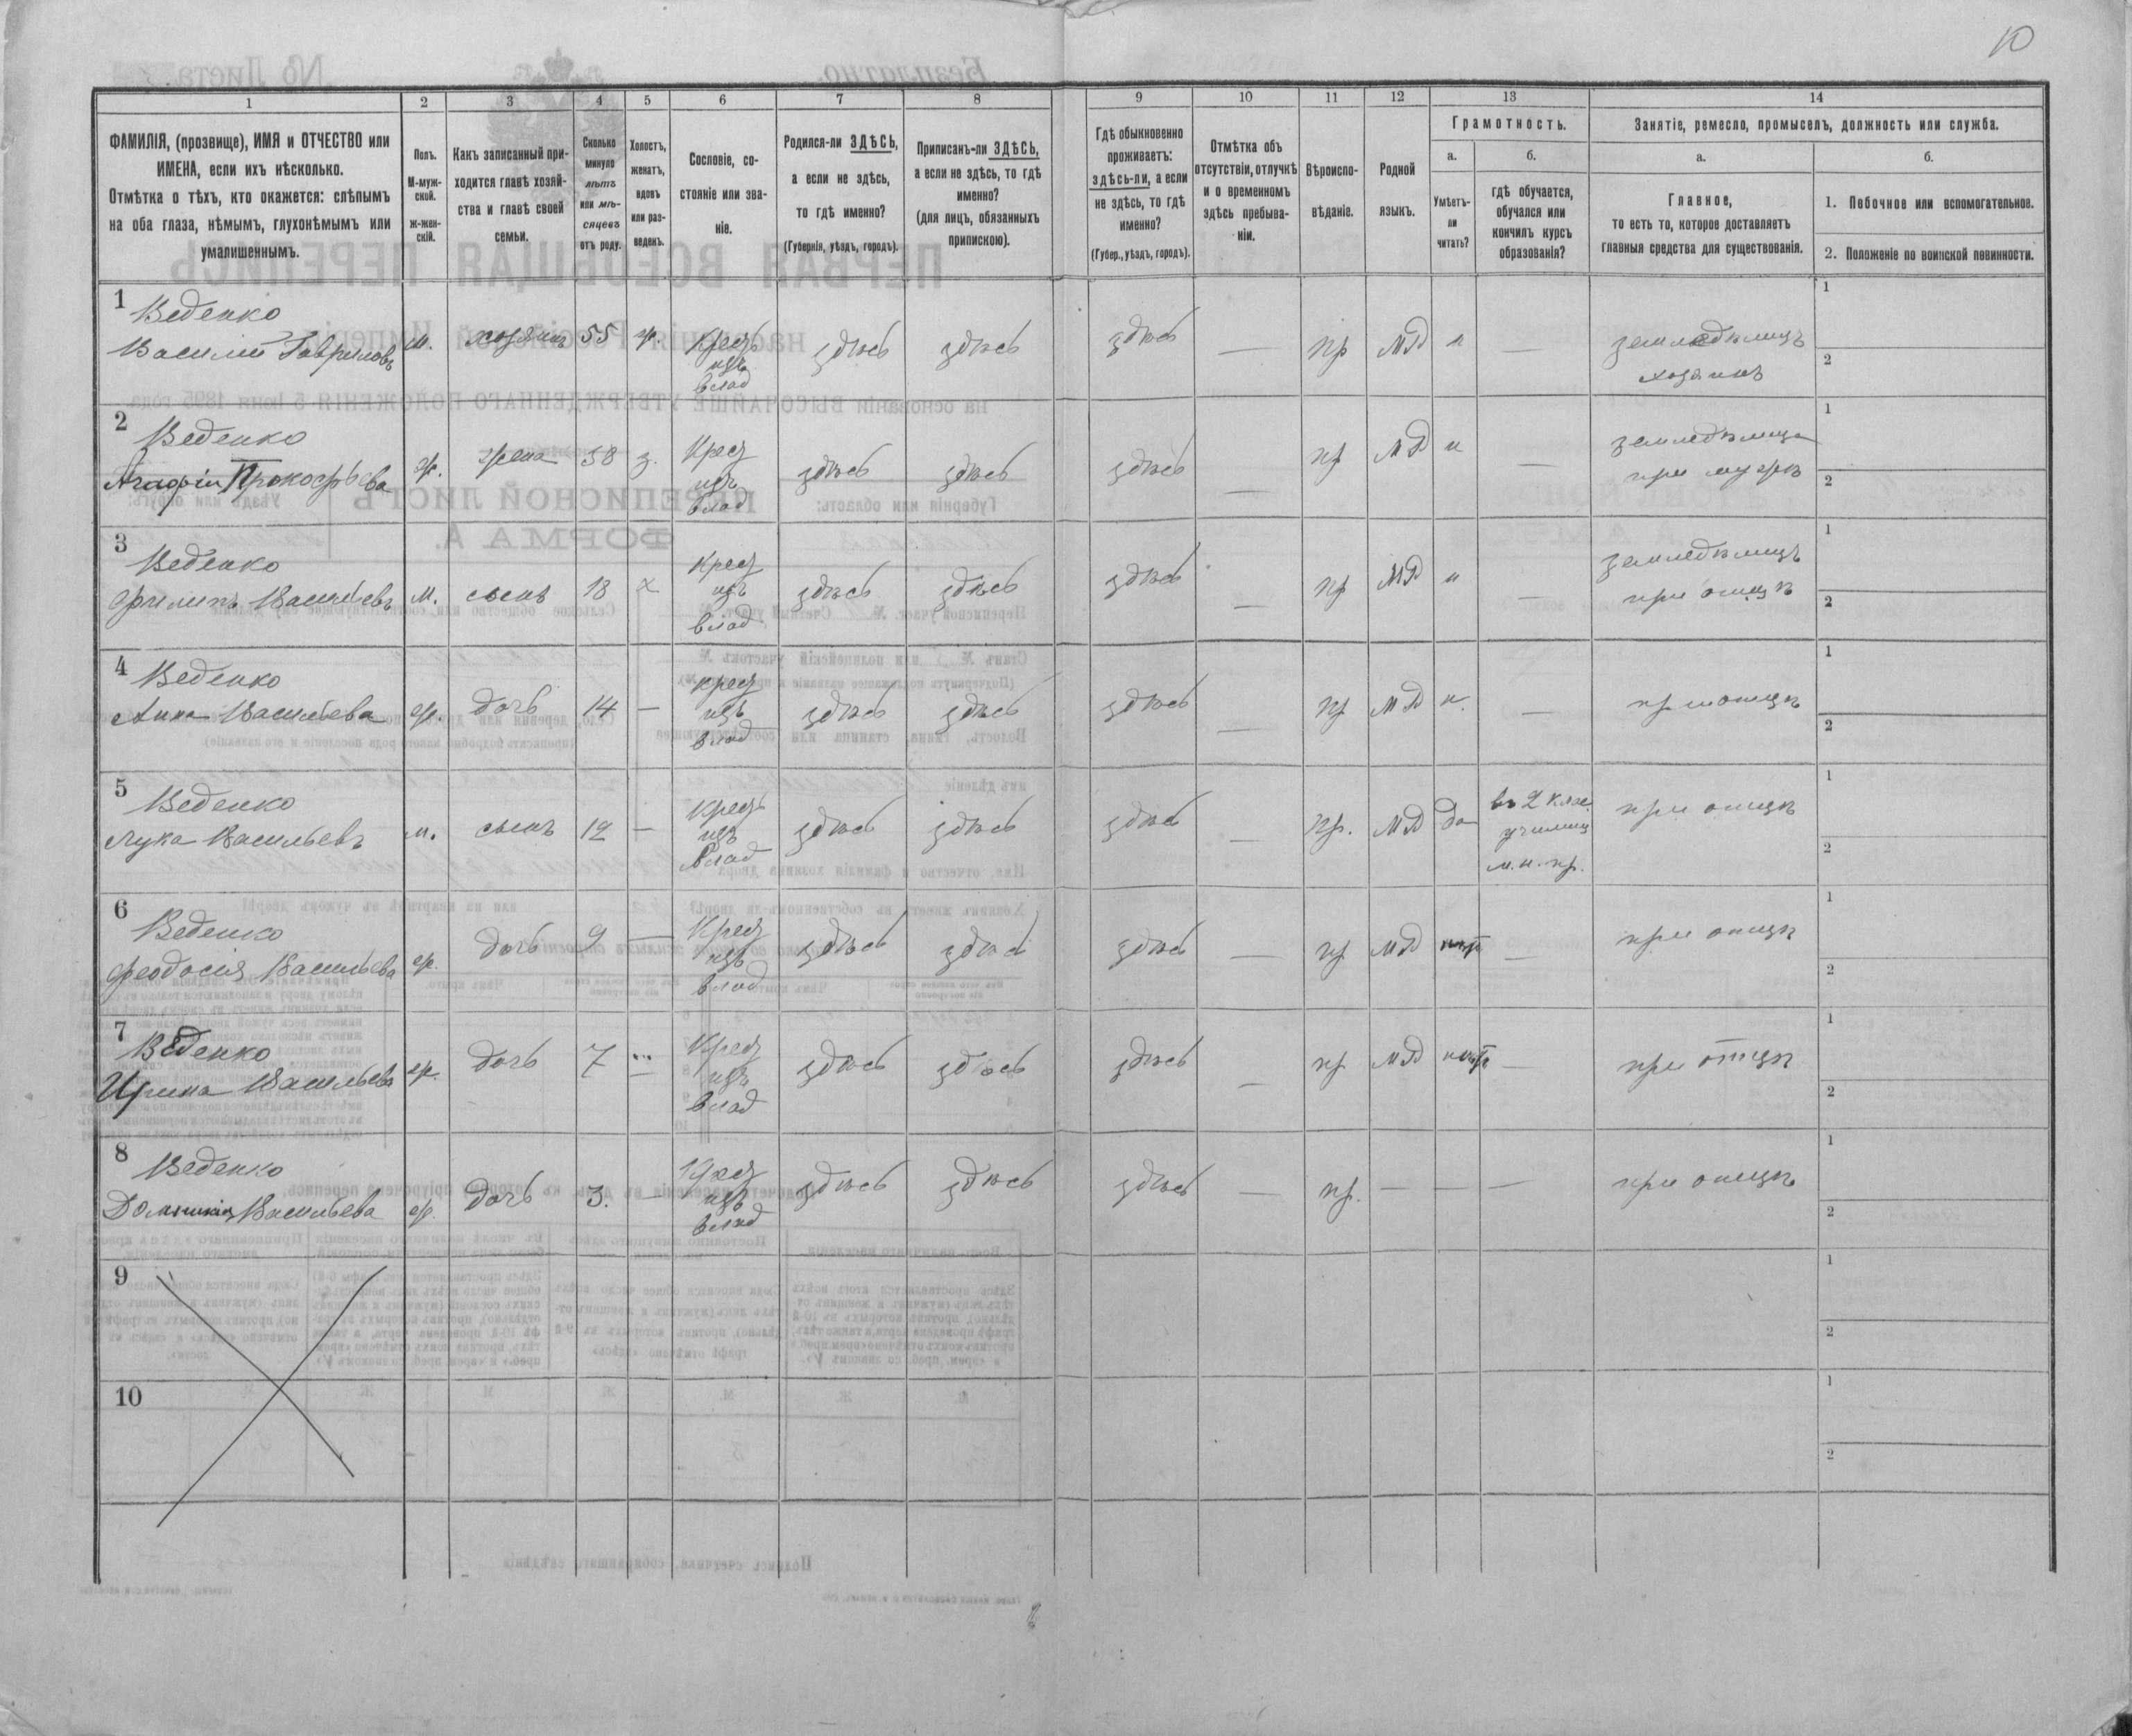 10
1
2
3
4
5
6
7
8
9
10
11
12
13
14
ФАМИЛІЯ, (прозвище), ИМЯ и ОТЧЕСТВО или
ИМЕНА, если ихъ нѣсколько.
Отмѣтка о тѣхъ, кто окажется: слѣпымъ
на оба глаза, нѣмымъ, глухонѣмымъ или
умалишеннымъ.
Полъ.
М-муж-
ской.
ж-жен-
скій.
Какъ записанный при-
ходится главѣ хозяй-
ства и главѣ своей
семьи.
Сколько
минуло
лѣтъ
или мѣ-
сяцевъ
отъ роду.
Холостъ,
женатъ,
вдовъ
или раз-
веденъ.
Сословіе, со-
стояніе или зва-
ніе.
Родился-ли ЗДѢСЬ,
а если не здѣсь,
то гдѣ именно?
(Губернія, уѣздъ, городъ).
Приписанъ-ли ЗДѢСЬ,
а если не здѣсь, то гдѣ
именно?
(для лицъ, обязанныхъ
припискою).
Гдѣ обыкновенно
проживаетъ:
здѣсь-ли, а если
не здѣсь, то гдѣ
именно?
(Губер., уѣздъ, городъ).
Отмѣтка объ
отсутствіи, отлучкѣ
и о временномъ
здѣсь пребыва-
ніи.
Вѣроиспо-
вѣданіе.
Родной
языкъ.
Грамотность.
а.
Умѣетъ-
ли
читать?
б.
гдѣ обучается,
обучался или
кончилъ курсъ
образованія?
Занятіе, ремесло, промыселъ, должность или служба.
а.
Главное,
то есть то, которое доставляетъ
главныя средства для существованія.
б.
1. Побочное или вспомогательное.
2. Положеніе по воинской повинности.
1
Веденко
Василій Гавриловъ
м. хозяинъ 55 ж.
Крест
изъ
влад
здѣсь здѣсь здѣсь — пр МР н —
земледѣлецъ
хозяинъ
1
2
2
Веденко
Агафія Прокофьева
ж. жена 38 з.
Крест
изъ
влад
здѣсь здѣсь здѣсь — пр МР н —
земледѣлица
при мужѣ
1
2
3
Веденко
Филипъ Васильевъ
м. сынъ 18 х
крест
изъ
влад
здѣсь здѣсь здѣсь — пр МР н —
земледѣлецъ
при отцѣ
1
2
4
Веденко
Анна Васильева
ж. дочь 14 —
крест
изъ
влад
здѣсь здѣсь здѣсь — пр МР н. —
при отцѣ
1
2
5
Веденко
Лука Васильевъ
м. сынъ 12 —
крест
изъ
влад
здѣсь здѣсь здѣсь — пр. МР да
въ 2 клас.
училищ
м. н. пр.
при отцѣ
1
2
6
Веденко
Феодосія Васильева
ж. дочь 9 —
Крест
изъ
влад
здѣсь здѣсь здѣсь — пр МР нѣтъ —
при отцѣ
1
2
7
Веденко
Ирина Васильева
ж. дочь 7 —
Крест
изъ
влад
здѣсь здѣсь здѣсь — пр МР нѣтъ —
при отцѣ
1
2
8
Веденко
Домникія Васильева
ж. дочь 3. —
Крест
изъ
влад
здѣсь здѣсь здѣсь — пр. — — —
при отцѣ
1
2
9
1
2
10
1
2